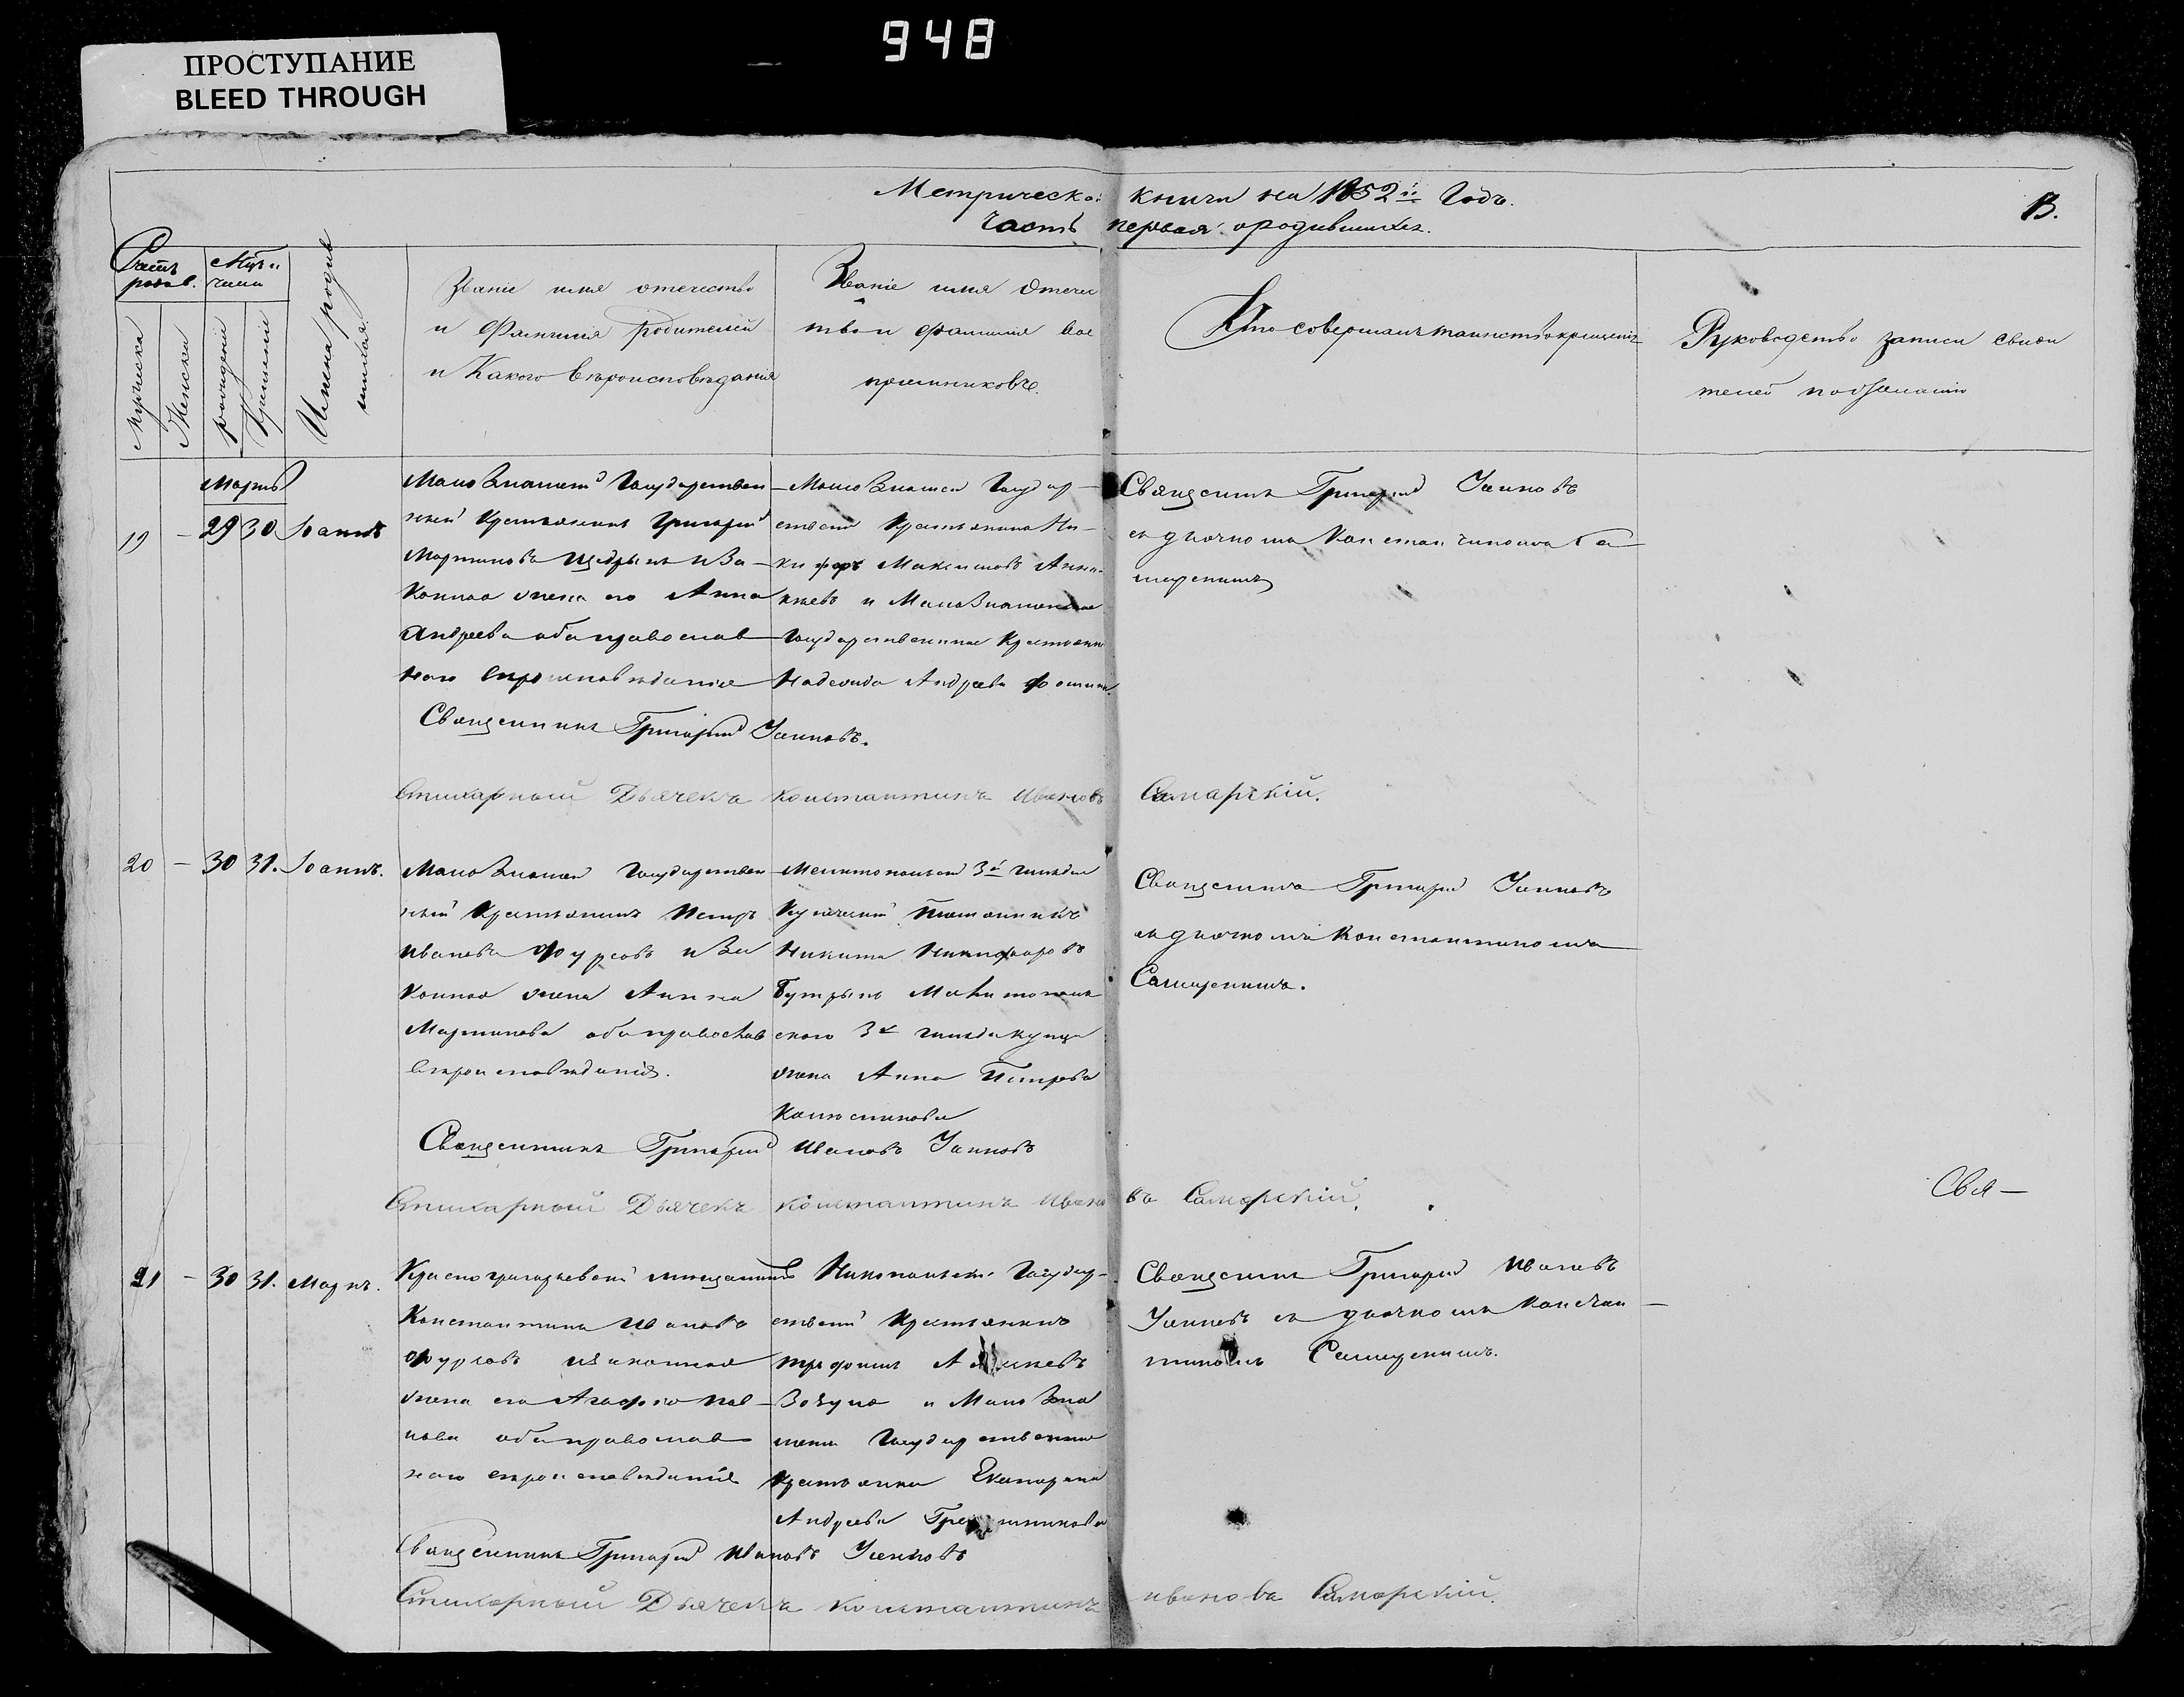 948
ПРОСТУПАНИЕ
BLEED THROUGH
Метрической книги на 1852й Годъ.
Часть первая о родившихся.
13.
Счетъ родив.
Мужеска
Женска
Мцъ и число
рожденія
Крещенія
Имена родив
шихся.
Званіе имя отечество
и Фамилія родителей
и Какого вѣроисповѣданія
Званіе имя Отечес
тво и фамилія вос
пріемниковъ.
Кто совершалъ таинство крещенія
Руководство записи свиди
телей по желанію
Мартъ
19 – 29 30 Іоаннъ
Мало Знаменс Государствен
ный Крестьянинъ Григорій
Мартиновъ Щедрынъ и За
конная жена его Анна
Андреева оба православ
ного вѣроисповѣданія
Мало Знаменс Государ
ствени Крестьянинъ Ни
кифоръ Максимовъ Анни
кіевъ и МалоЗнаменская
Государственная Крестьянк
Надежда Андреева Фомина
Священникъ Григорій Усиковъ
съ дьячкомъ Константиномъ Са
марскимъ
Священникъ Григорій Усиковъ.
Стихарный Дьячекъ Константинъ Ивановъ Самарскій.
20 – 30 31. Іоаннъ.
Мало Знамен Государствен
ный Крестьянинъ Петръ
Ивановъ Фурсовъ и За
конная жена Анна
Мартинова оба православ
вѣроисповѣданія.
Мелитопольской 3й гильдіи
Купеческій Племянникъ
Никита Никифоровъ
Бутрынъ Мелитополь
ского 3й гильдіи купца
жена Анна Петрова
Колесникова
Священникъ Григорій Усиковъ
съ дьячкомъ Константиномъ
Самарскимъ.
Священникъ Григорій Ивановъ Усиковъ
Стихарный Дьячекъ Константинъ Ивановъ Самарскій.
Свя–
21 – 30 31. Маркъ.
Красногригорьевскій мещанинъ
Константинъ Ивановъ
Фурсовъ изаконная
жена его Агафія Пав
лова оба православ
ного вѣроисповѣданія
Никопольскі Государ
ствени Крестьянинъ
Трофимъ
и Мало Зна
менс Государственная
Крестьянка Екатерина
Андреева
Священникъ Григорій Ивановъ
Усиковъ съ дьячкомъ Констан
тиномъ Самарскимъ.
Священникъ Григорій Ивановъ Усиковъ
Стихарный Дьячекъ Константинъ Ивановъ Самарскій.